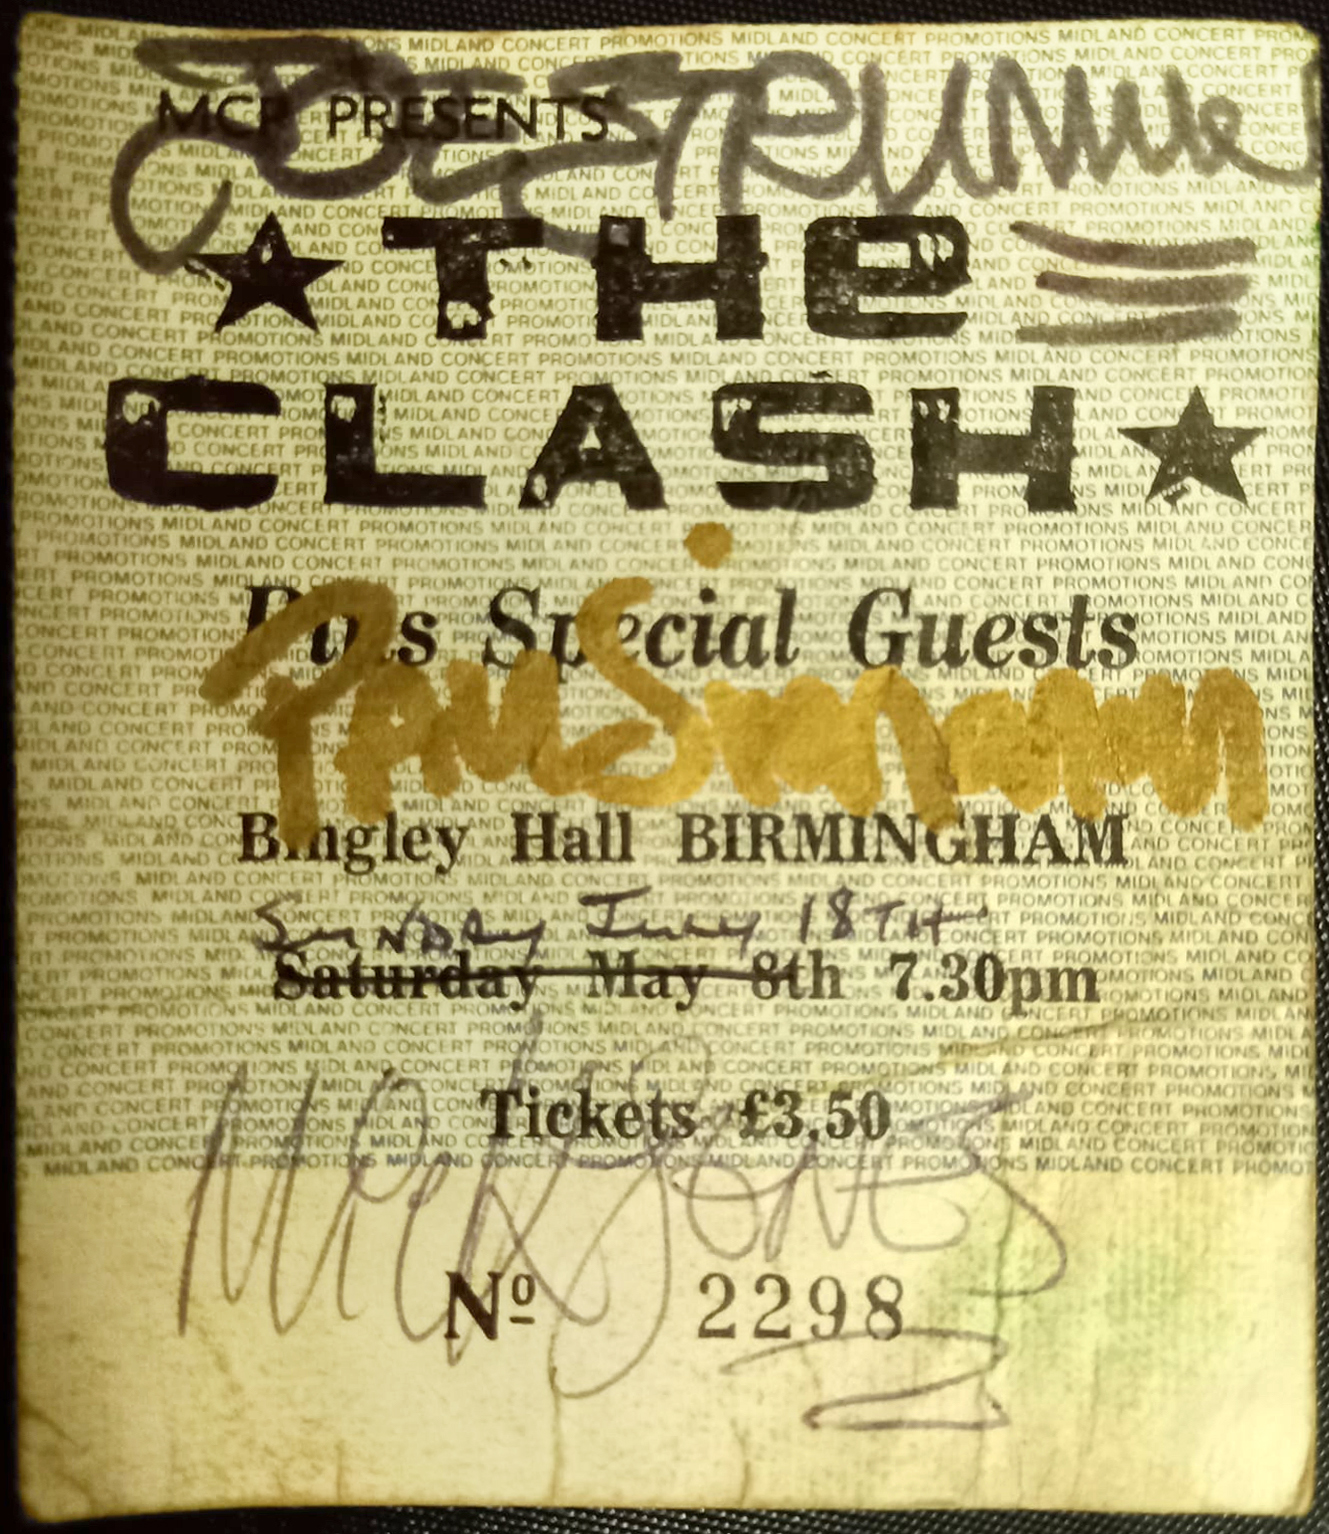 MCP PRESENTS
JOE STRUMMER
★ THE
CLASH ★
Plus Special Guests
PAUL Simonon
Bingley Hall BIRMINGHAM
SUNDAY JULY 18TH
Saturday May 8th 7.30pm
Tickets £3.50
MICK JONES
Nº 2298
MIDLAND CONCERT PROMOTIONS